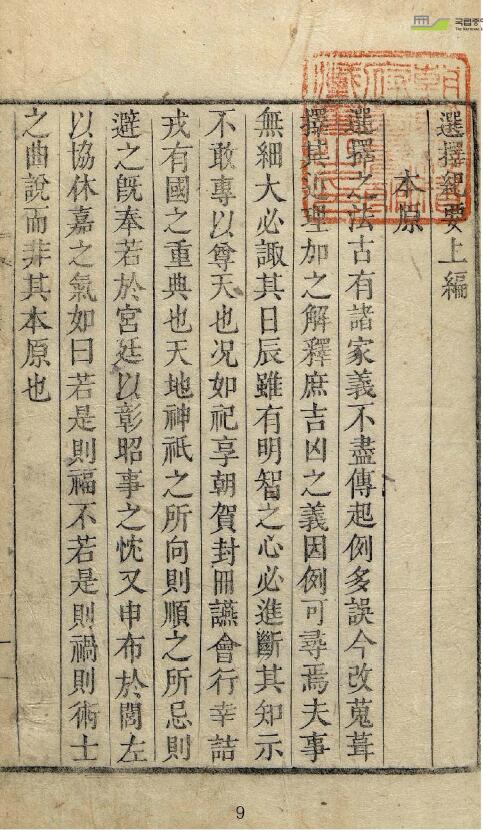 選擇紀要上編
本原
選擇之法古有諸家義不盡傳起例多誤今改蒐葺
擇其近理加之解釋庶吉凶之義因例可尋焉夫事
無細大必諏其日辰雖有明智之心必進斷其知示
不敢專以尊天也况如祀享朝賀封冊讌會行幸詰
戎有國之重典也天地神祇之所向則順之所忌則
避之旣奉若於宮廷以彰昭事之忱又申布於閭左
以協休嘉之氣如曰若是則福不若是則禍則術士
之曲說而非其本原也
9